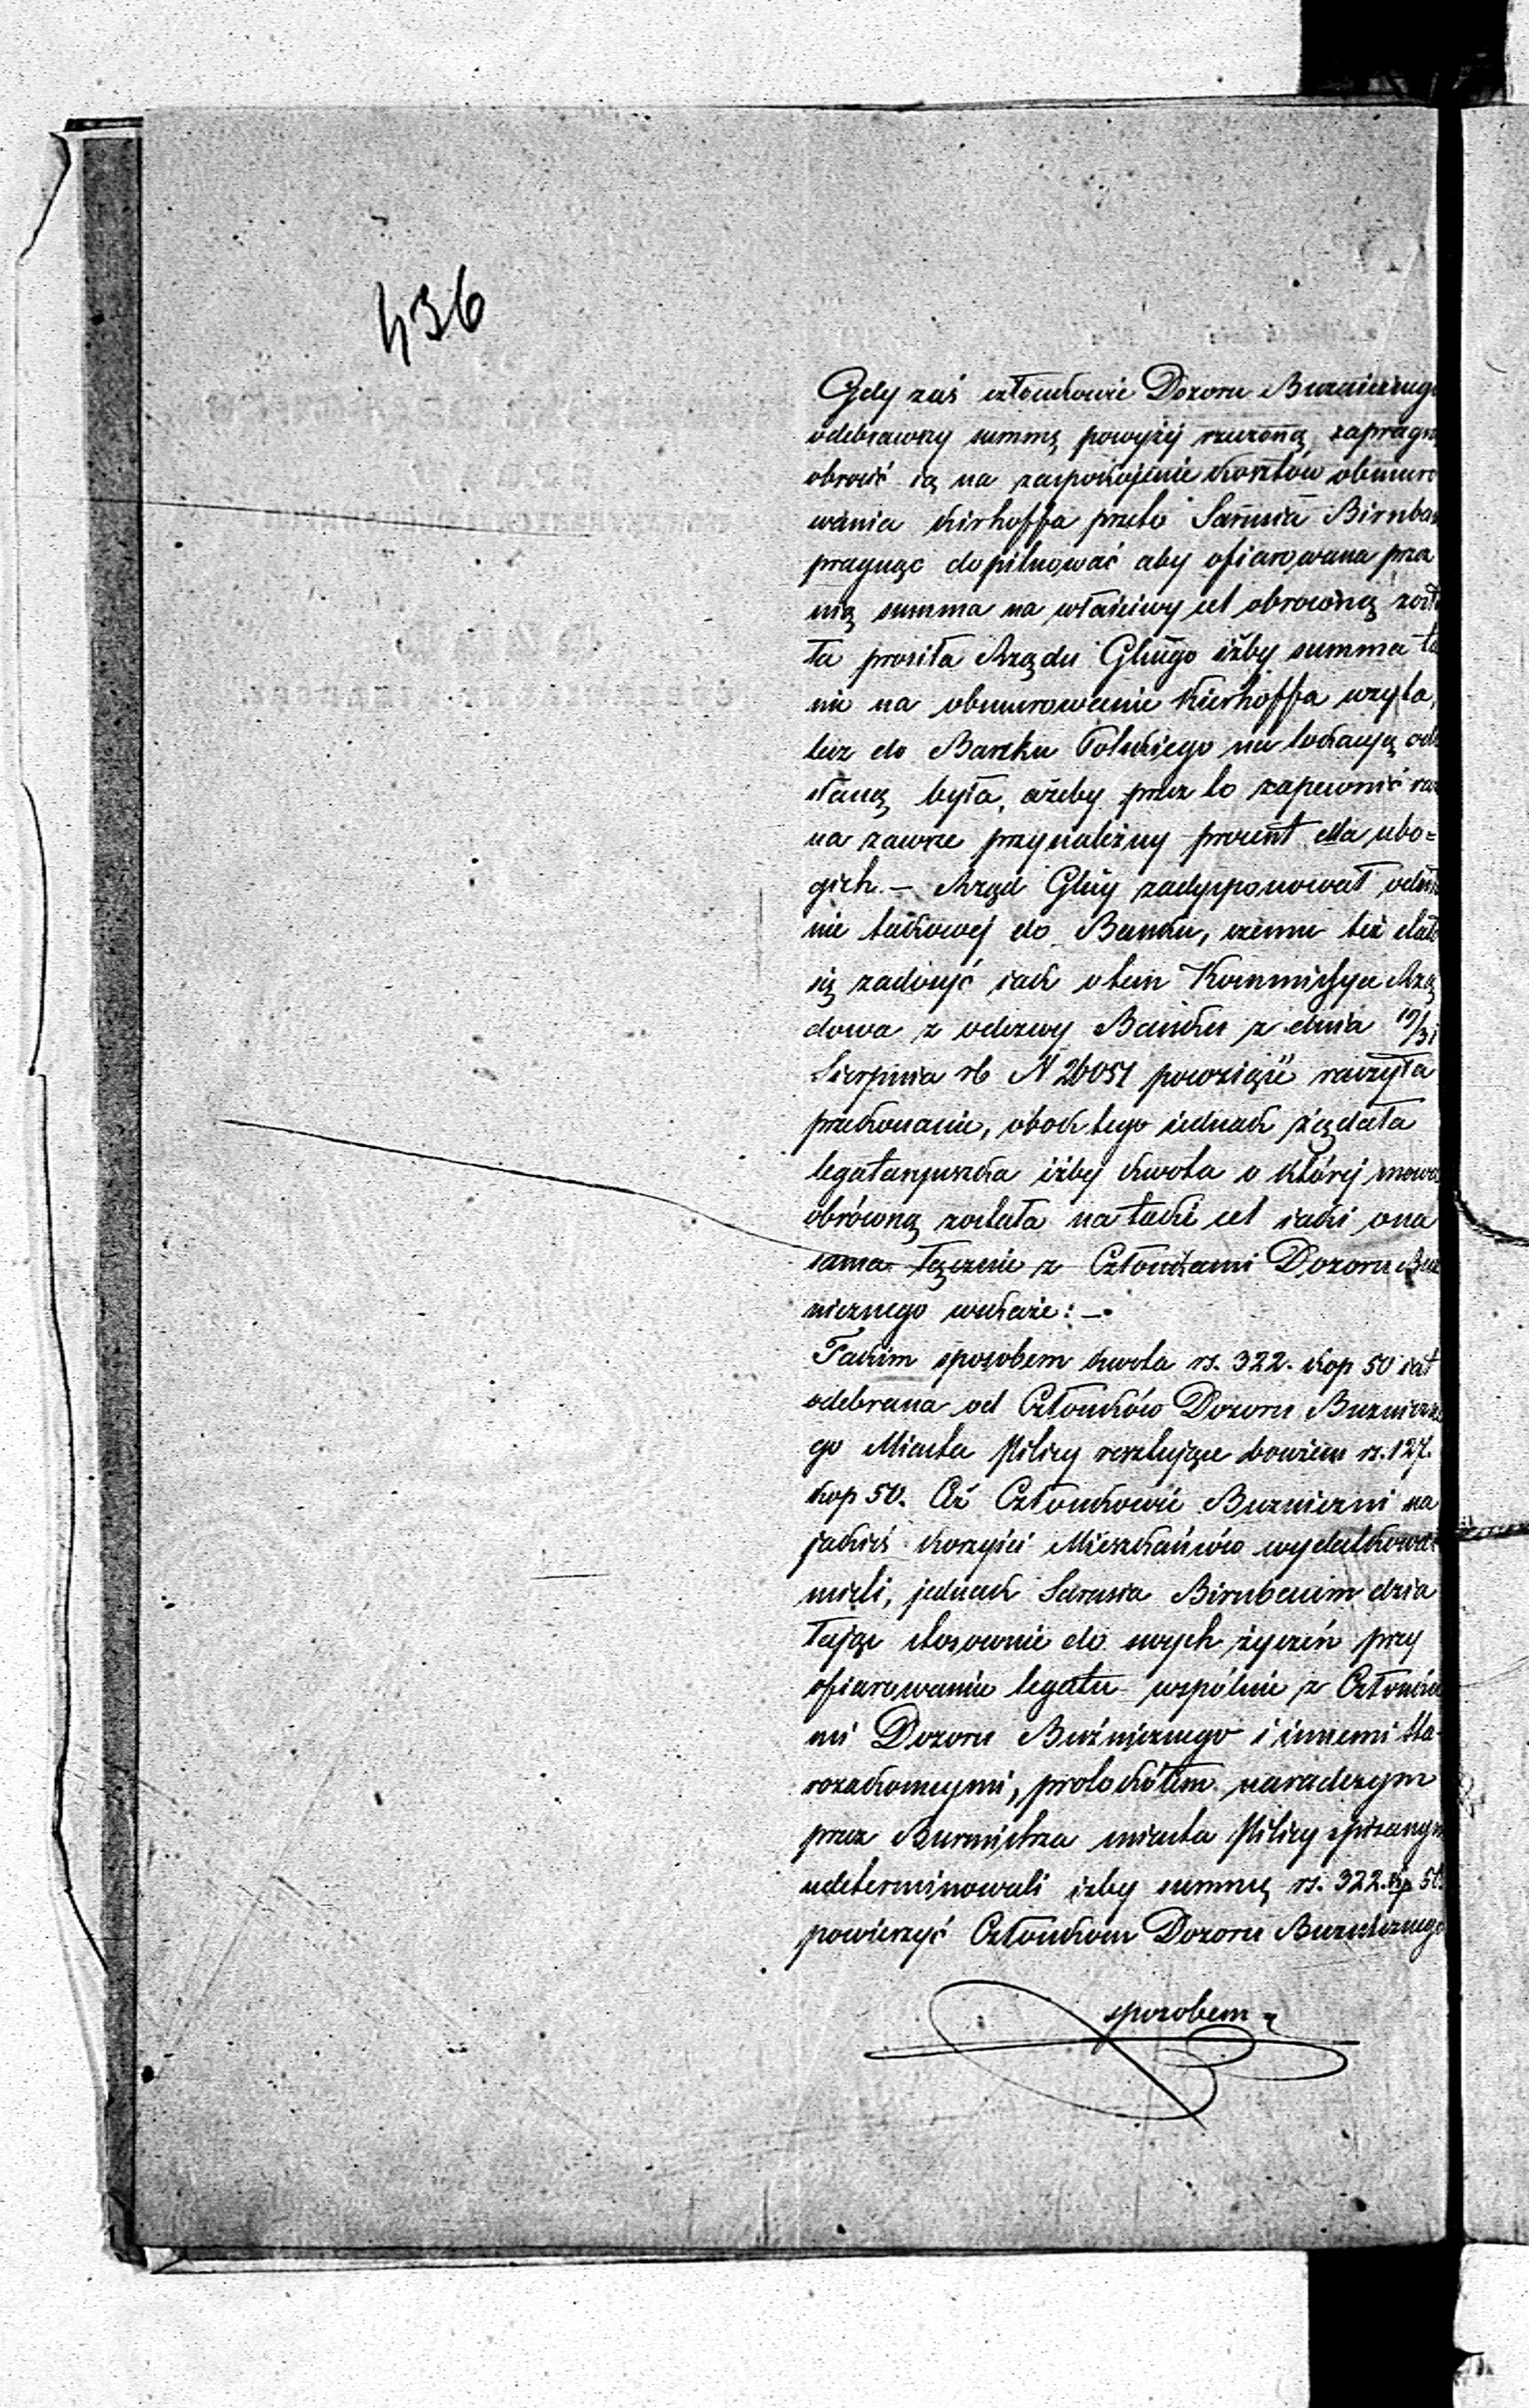 436
Gdy zaś członkowie Dozoru Bużniczneg
odebrawszy summę powyżej rzeczoną zapragn
obrócić ią na zaspokojenie kosztów obmuro
wania kirhoffa przeto Sarusia Birnba
pragnąc dopilnować aby ofiarowana prze
nią summa na właściwy cel obróconą zost
ta prosiła Rządu Glnego iżby summa ta
nie na obmurowanie Kierhoffa użyta,
lecz do Banku Polskiego na lokacyą ode
słaną była, ażeby przez to zapewnić raz
na zawsze przynależny procent dla ubo=
gich. — Rząd Glny zadysponował odesła
nie takowej do Banku, czemu też stało
się zadosyć iak o tem Kommissya Rzą
dowa z odezwy Banku z dnia 19/31
Sierpnia rb N 26051 powziąść raczyła
przekonanie, obok tego iednak żądała
legataryuszka iżby kwota o której mowa
obrócną została na taki cel iaki ona
sama łącznie z Członkami Dozoru Buż
nicznego wskaże: —
Takim sposobem kwota rs. 322. kop 50 iest
odebrana od Członków Dozoru Bużniczne
go Miasta Pilicy resztujące bowiem rs. 127.
kop 50. Ciż Członkowie Bużniczni na
jakieś korzyści Mieszkańców wydatkowa
mieli, jednak Sarusia Birnbaum dzia
łając stosownie do swych życzeń przy
ofiarowaniu legatu wspólnie z Członka
mi Dozoru Bużnicznego i innemi sta
rozakonnymi, protokółem naradczym
przez Burmistrza miasta Pilicy spisanym
udeterminowali iżby summę rs. 322. kop 50
powierzyć Członkom Dozoru Bużnicznego
sposobem